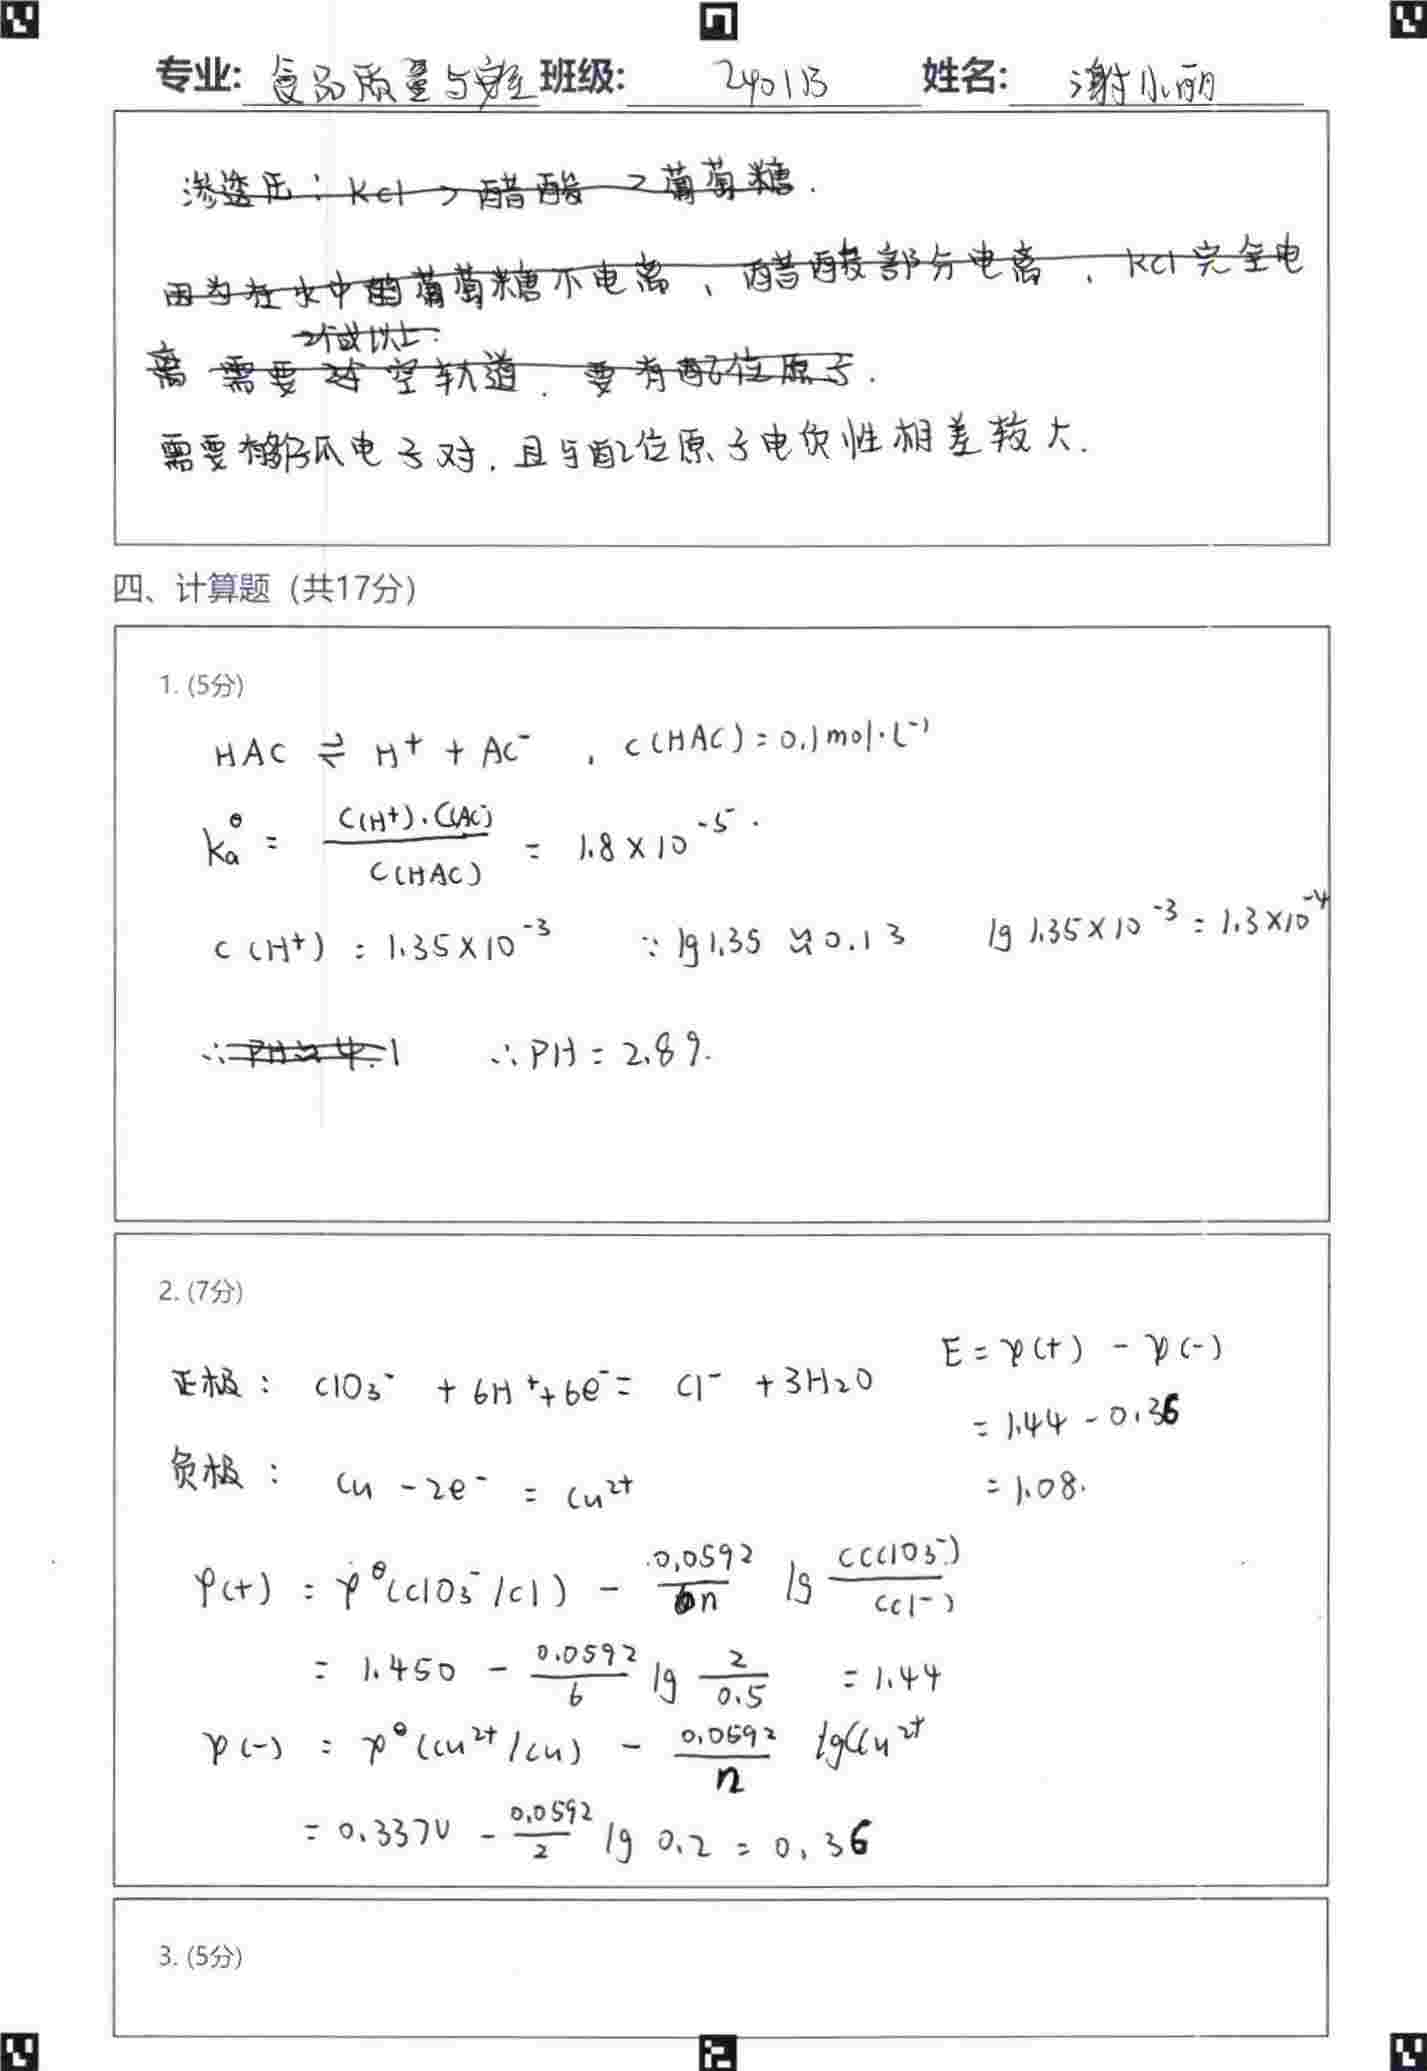 专业: 食品质量与安全 班级: 24011B 姓名: 谢小丽
渗透压: KCl > 醋酸 > 葡萄糖.
因为在水中葡萄糖不电离、醋酸部分电离、KCl完全电
2个或以上
离 需要 空轨道. 要有配位原子.
需要有孤电子对, 且与配位原子电负性相差较大.
四、计算题（共17分）
1. (5分)
HAC ⇌ H⁺ + AC⁻ , C(HAC) = 0.1mol·L⁻¹
Ka^θ = C(H⁺)·C(AC⁻) / C(HAC) = 1.8×10⁻⁵.
C(H⁺) = 1.35×10⁻³ ∵ lg1.35 ≈ 0.13 lg 1.35×10⁻³ = 1.3×10⁻⁴
∴ PH≈4.1 ∴ PH = 2.89.
2. (7分)
正极: ClO3⁻ + 6H⁺ + 6e⁻ = Cl⁻ + 3H2O E = φ(+) - φ(-)
= 1.44 - 0.36
负极: Cu - 2e⁻ = Cu²⁺ = 1.08.
φ(+) = φ^θ(ClO3⁻/Cl) - 0.0592/6n lg C(ClO3⁻)/C(Cl⁻)
= 1.450 - 0.0592/6 lg 2/0.5 = 1.44
φ(-) = φ^θ(Cu²⁺/Cu) - 0.0592/n lgCCu²⁺
= 0.337V - 0.0592/2 lg 0.2 = 0.36
3. (5分)